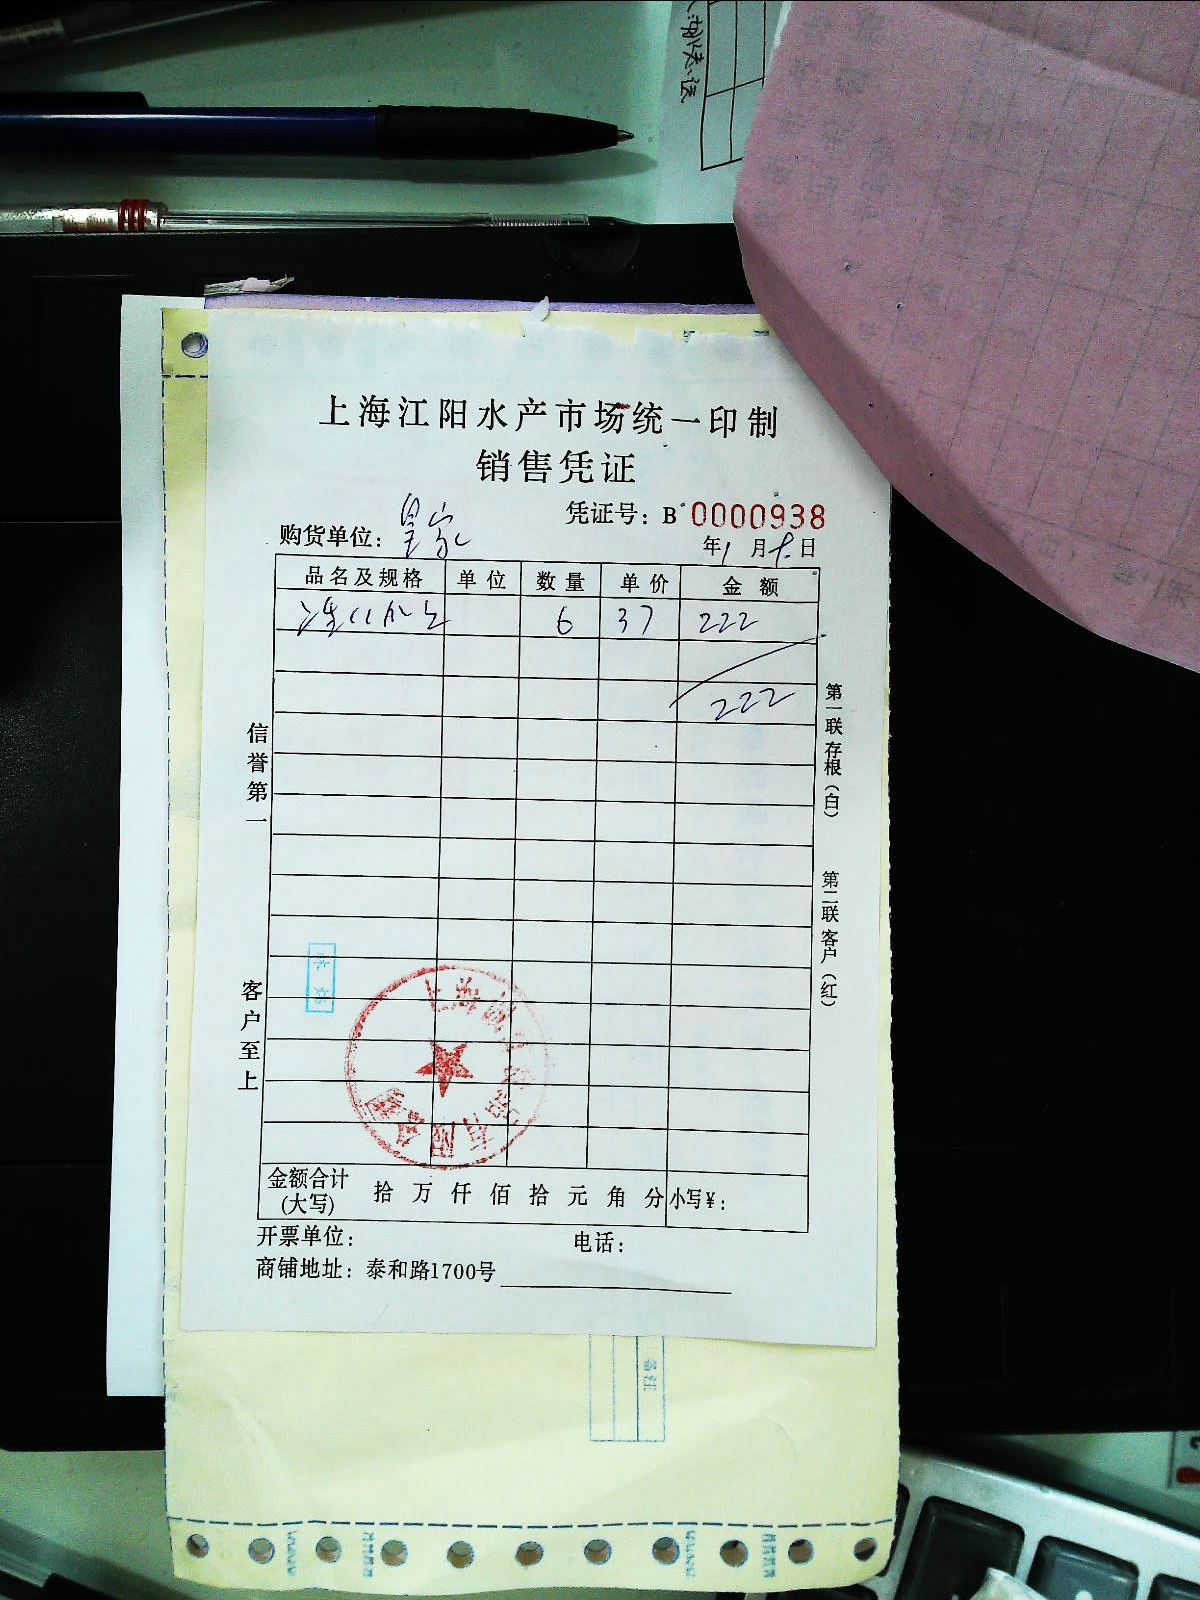 上海江阳水产市场统一印制
销售凭证
凭证号：B 0000938
购货单位：皇家
年1月 日
品名及规格 单位 数量 单价 金额
6 37 222
222
信誉第一
客户至上
第一联存根（白）
第二联客户（红）
上海 有限公司
金额合计
(大写)
拾 万 仟 佰 拾 元 角 分 小写￥：
开票单位： 电话：
商铺地址：泰和路1700号
备注